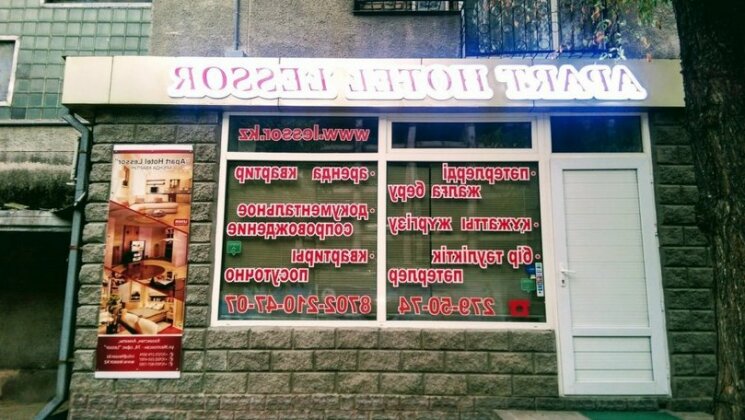 APART HOTEL LESSOR
www.lessor.kz
·пәтерлерді
жалға беру
·құжатты жүргізу
·бір тәуліктік
пәтерлер
279-50-74
·аренда квартир
·документальное
сопровождение
·квартиры
посуточно
8702-210-47-07
"Apart Hotel Lessor"
Казахстан, Алматы,
офис "Lessor"